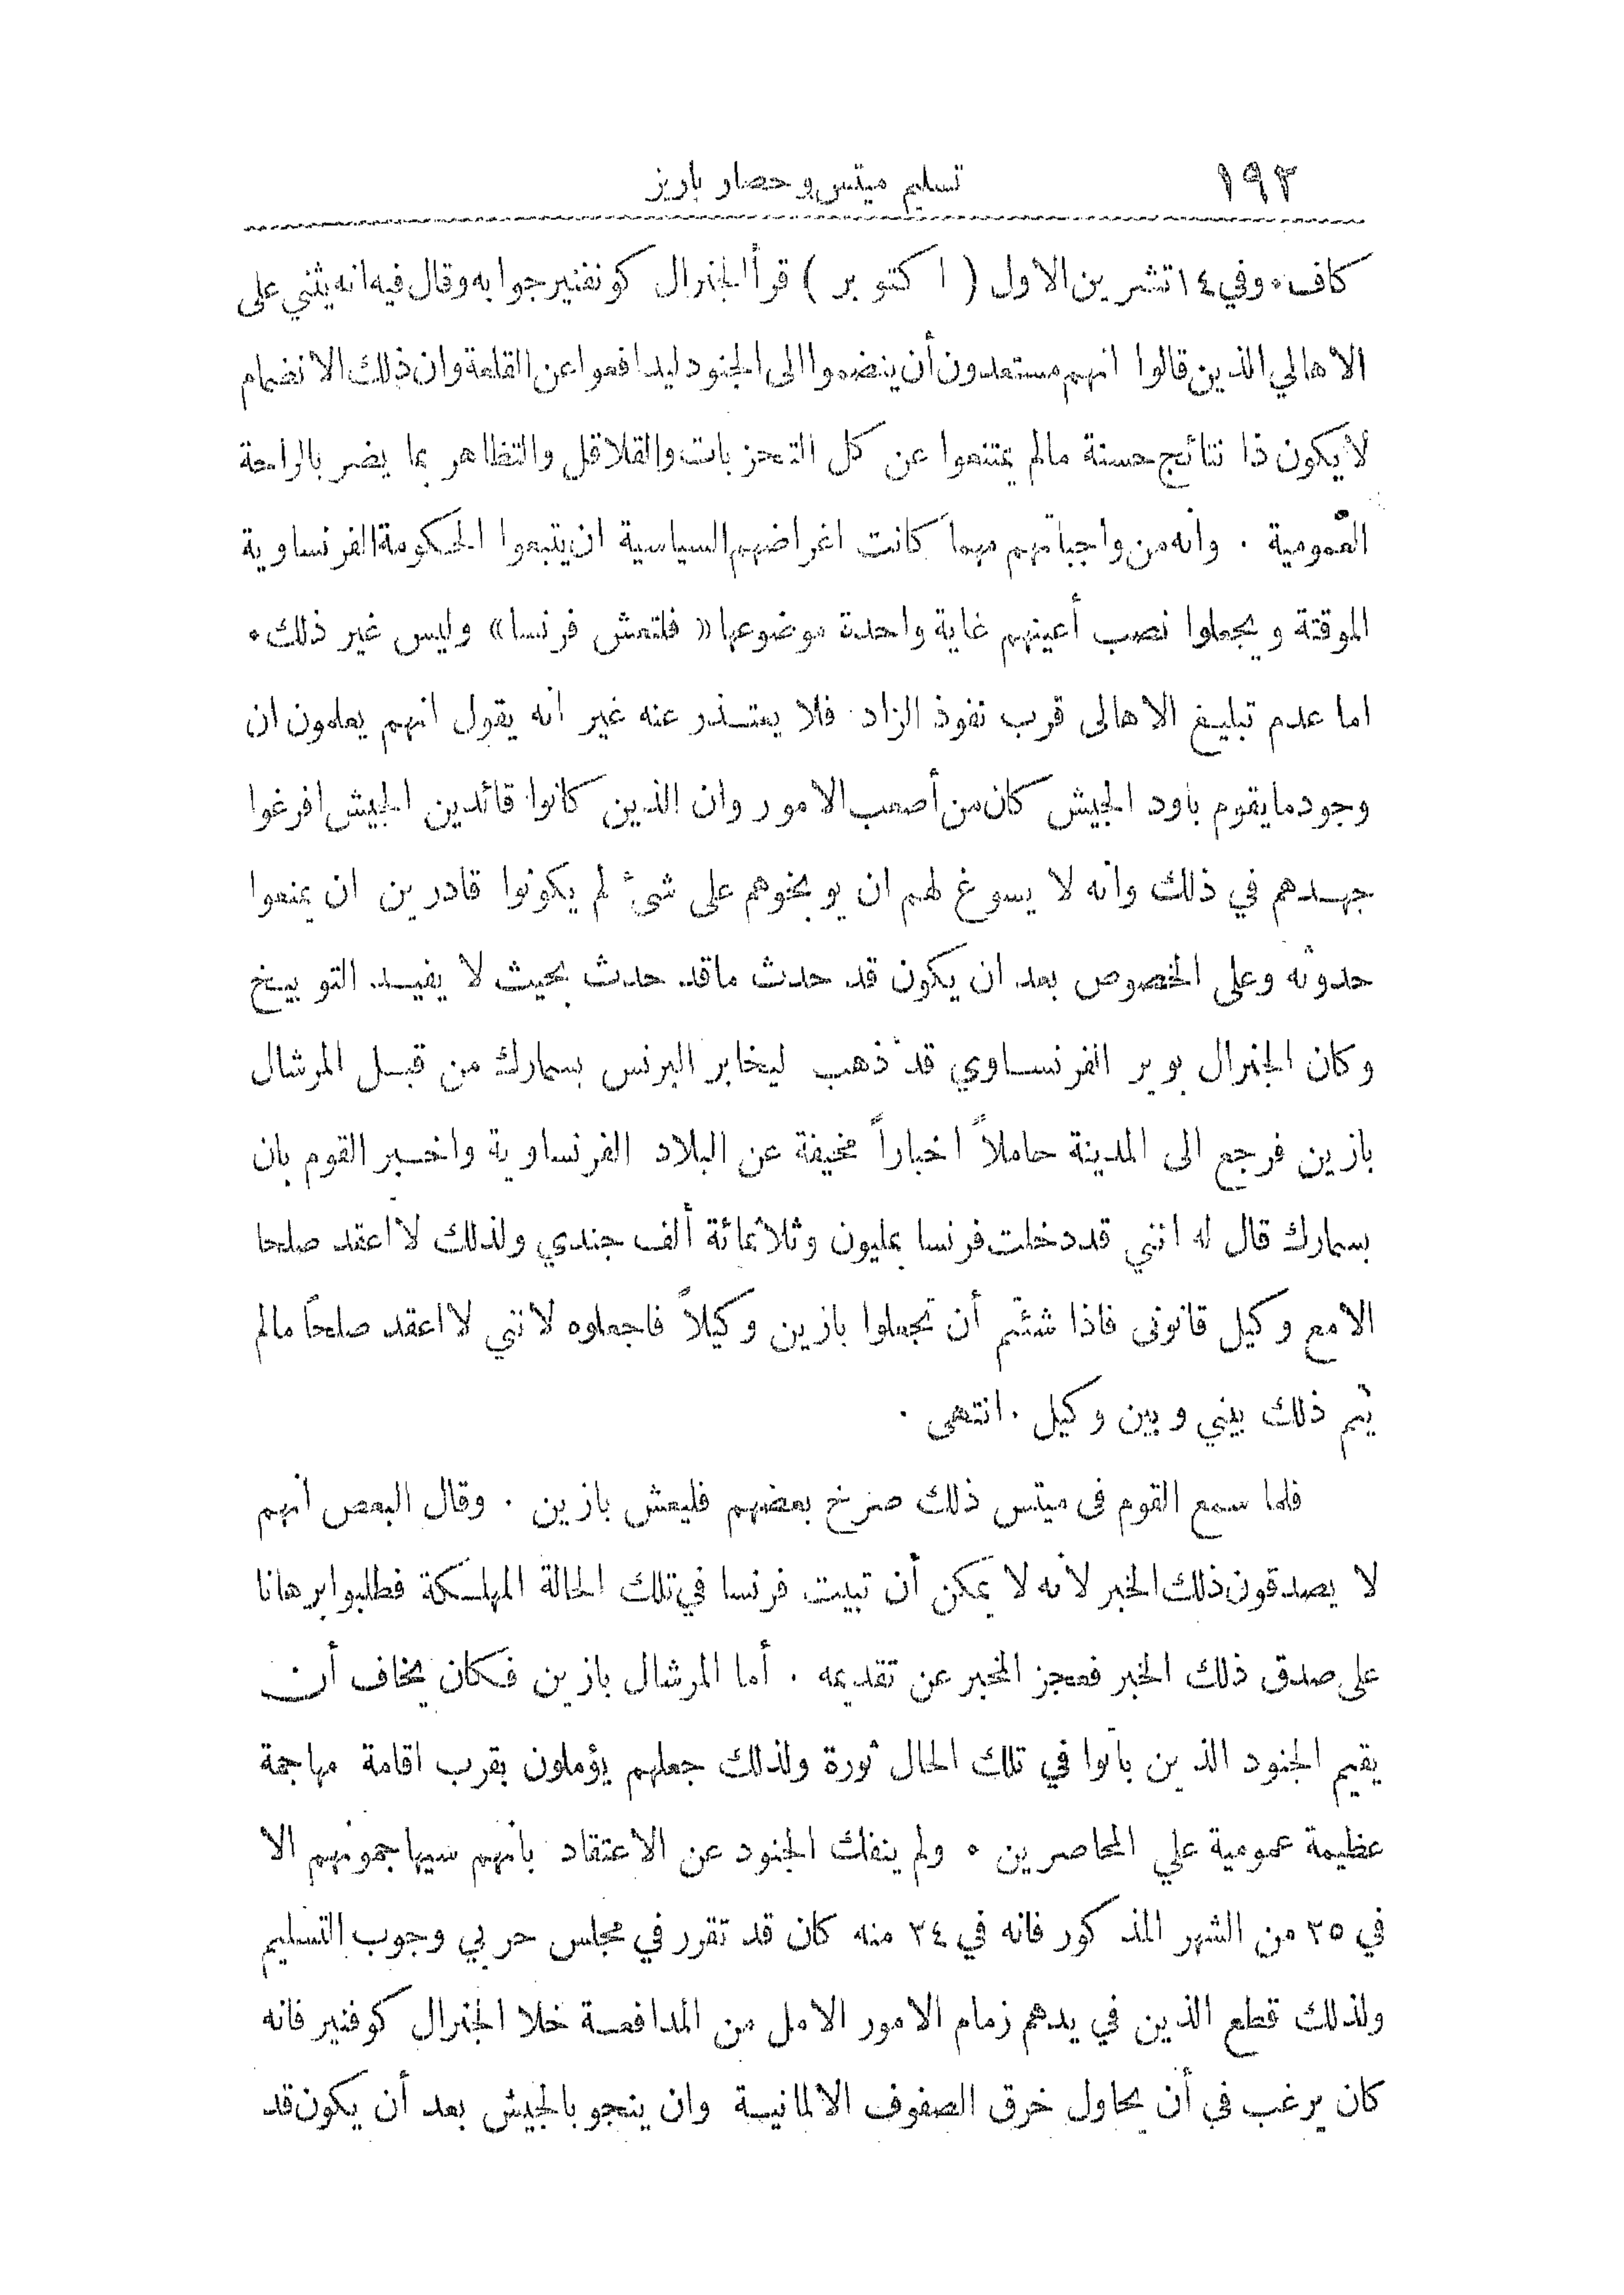 ١٩٢ تسليم ميتس وحصار باريز
كاف. وفي ١٤ تشرين الاول ( اكتوبر ) قرأ الجنرال كونفنير جوابه وقال فيه انه يثني على
الاهالي الذين قالوا انهم مستعدون أن ينضموا الى الجنود ليدافعوا عن القلعة وان ذلك الانضمام
لا يكون ذا نتائج حسنة مالم يمتنعوا عن كل التحزبات والقلاقل والتظاهر بما يضر بالراحة
العمومية . وانه من واجباتهم مهما كانت اغراضهم السياسية ان يتبعوا الحكومة الفرنساوية
الموقتة ويجعلوا نصب أعينهم غاية واحدة موضوعها « فلتعش فرنسا» وليس غير ذلك.
اما عدم تبليغ الاهالى قرب نفوذ الزاد فلا يعتذر عنه غير انه يقول انهم يعلمون ان
وجود مايقوم باود الجيش كان من أصعب الامور وان الذين كانوا قائدين الجيش افرغوا
جهدهم في ذلك وانه لا يسوغ لهم ان يوبخوهم على شئ لم يكونوا قادرين ان يمنعوا
حدوثه وعلى الخصوص بعد ان يكون قد حدث ماقد حدث بحيث لا يفيد التوبيخ
وكان الجنرال بوير الفرنساوي قد ذهب ليخابر البرنس بسمارك من قبل المرشال
بازين فرجع الى المدينة حاملاً اخباراً مخيفة عن البلاد الفرنساوية واخبر القوم بان
بسمارك قال له انني قد دخلت فرنسا بمليون وثلاثمائة ألف جندي ولذلك لا اعقد صلحا
الا مع وكيل قانونى فاذا شئتم أن تجعلوا بازين وكيلاً فاجعلوه لانني لا اعقد صلحًا مالم
يتم ذلك بيني وبين وكيل . انتهى .
فلما سمع القوم فى ميتس ذلك صرخ بعضهم فليعش بازين . وقال البعض انهم
لا يصدقون ذلك الخبر لانه لا يمكن أن تبيت فرنسا في تلك الحالة المهلكة فطلبوا برهانا
على صدق ذلك الخبر فعجز المخبر عن تقديمه . أما المرشال بازين فكان يخاف أن
يقيم الجنود الذين باتوا في تلك الحال ثورة ولذلك جعلهم يؤملون بقرب اقامة مهاجمة
عظيمة عمومية علي المحاصرين . ولم ينفك الجنود عن الاعتقاد بانهم سيهاجمونهم الا
في ٢٥ من الشهر المذكور فانه في ٢٤ منه كان قد تقرر في مجلس حربي وجوب التسليم
ولذلك قطع الذين في يدهم زمام الامور الامل من المدافعة خلا الجنرال كوفنير فانه
كان يرغب في أن يحاول خرق الصفوف الالمانية وان ينجو بالجيش بعد أن يكون قد